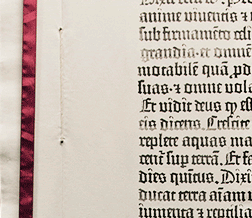 anime viventis et
sub firmamēto celi
grandia·et omnē
motabilē quā pd
suas·et omne vola
Et vidit deus cp es
eis dicens Crescite
replete aquas ma
cent sup terrā Et fa
dies quintus Dixi
ducat terra aiam
iumenta et reptilia